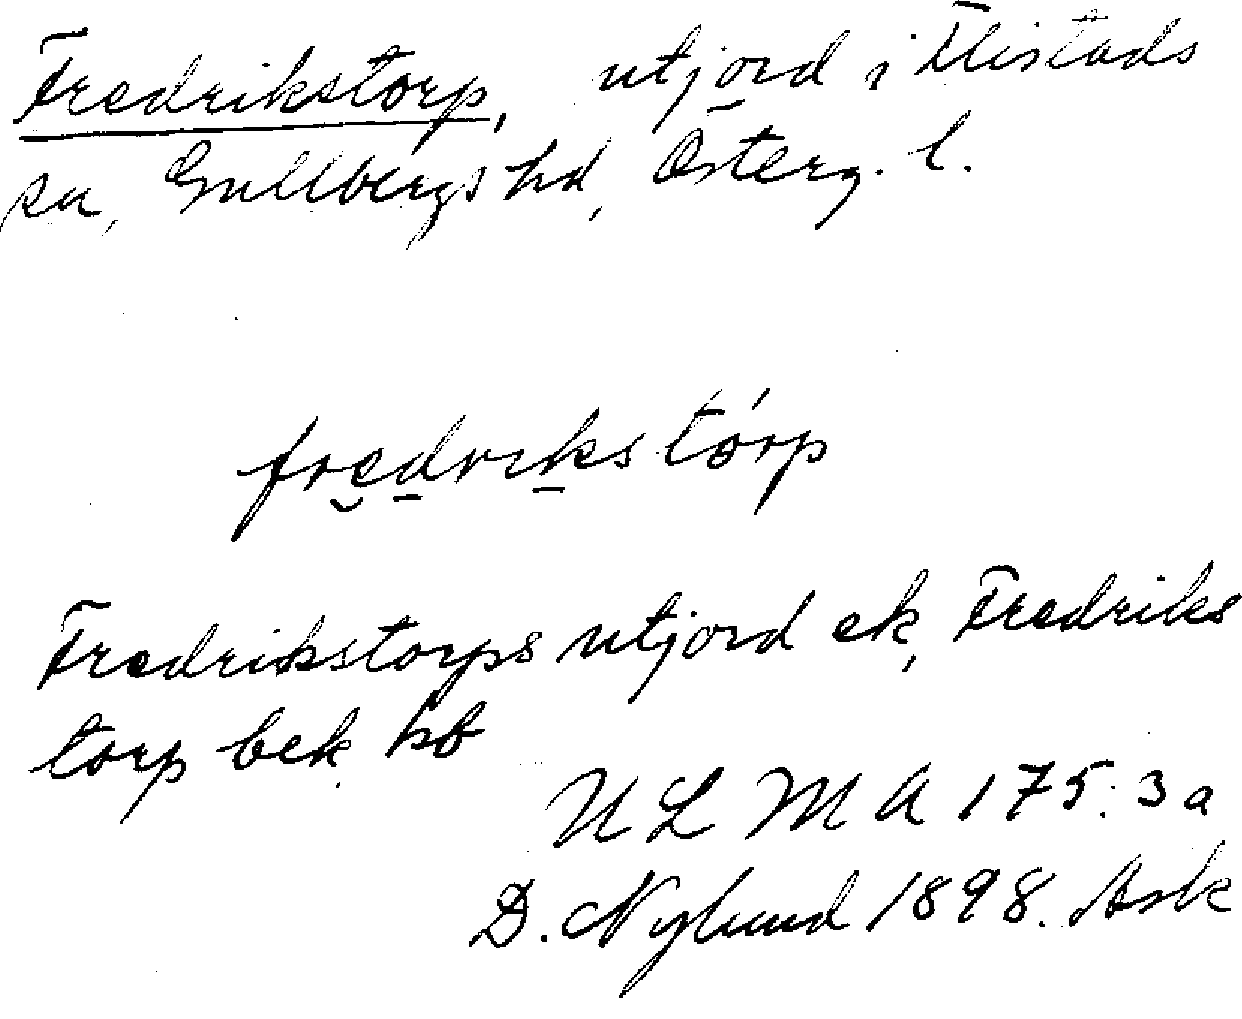 Fredrikstorp, utjord i Flistads
sn, Gullbergs hd, Österg. l.
fredrikstórp
Fredrikstorps utjord ek, Fredriks
torp bek hb
ULMA 175:3a
D. Nylund 1898. Ask